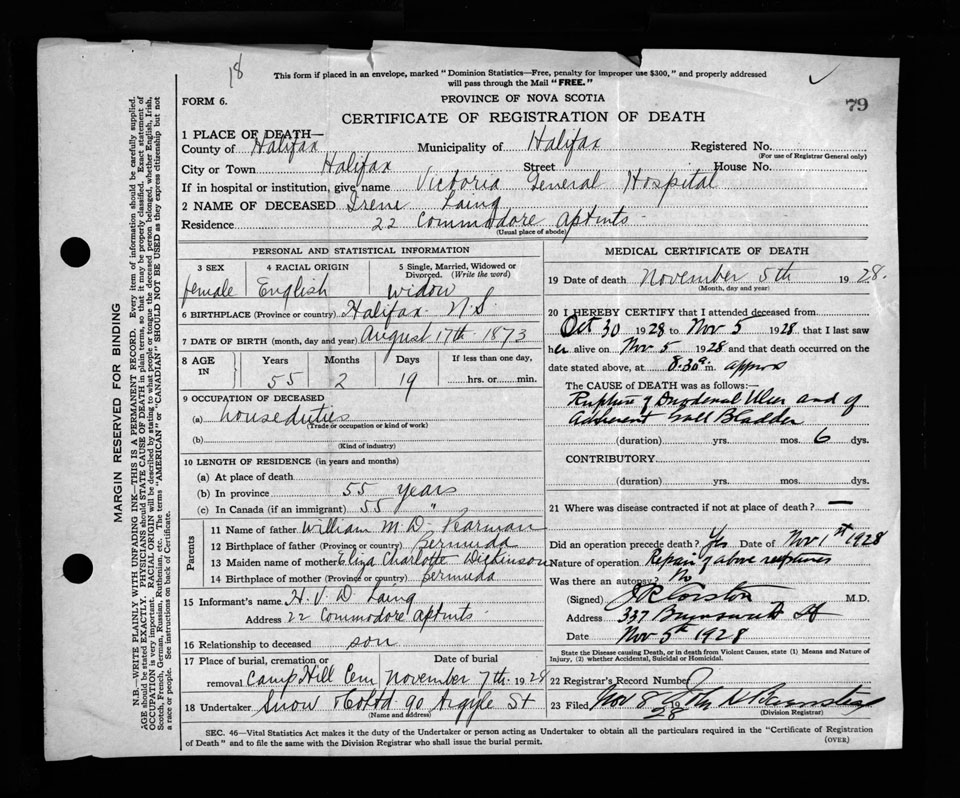 18
This form if placed in an envelope, marked "Dominion Statistics—Free, penalty for improper use $300," and properly addressed
will pass through the Mail "FREE."
✓
FORM 6.
PROVINCE OF NOVA SCOTIA
79
CERTIFICATE OF REGISTRATION OF DEATH
1 PLACE OF DEATH—
County of Halifax Municipality of Halifax Registered No.
(For use of Registrar General only)
City or Town Halifax Street House No.
If in hospital or institution, give name Victoria General Hospital
2 NAME OF DECEASED Irene Laing
Residence 22 Commodore aptmts
(Usual place of abode)
MARGIN RESERVED FOR BINDING
N.B.—WRITE PLAINLY WITH UNFADING INK—THIS IS A PERMANENT RECORD. Every item of information should be carefully supplied.
AGE should be stated EXACTLY. PHYSICIANS should STATE CAUSE OF DEATH in plain terms, so that it may be properly classified. Exact statement of
OCCUPATION is very important. RACIAL ORIGIN will be described by stating to what people or tongue the deceased person belonged, whether English, Irish,
Scotch, French, German, Russian, Ruthenian, etc. The terms "AMERICAN" or "CANADIAN" SHOULD NOT BE USED as they express citizenship but not
a race or people. See instructions on back of Certificate.
PERSONAL AND STATISTICAL INFORMATION
3 SEX 4 RACIAL ORIGIN 5 Single, Married, Widowed or
Divorced. (Write the word)
female English widow
6 BIRTHPLACE (Province or country) Halifax N.S.
7 DATE OF BIRTH (month, day and year) August 17th 1873
8 AGE IN Years Months Days If less than one day,
55 2 19 hrs. or min.
9 OCCUPATION OF DECEASED
(a) house duties
(Trade or occupation or kind of work)
(b)
(Kind of industry)
10 LENGTH OF RESIDENCE (in years and months)
(a) At place of death
(b) In province 55 years
(c) In Canada (if an immigrant) 55 "
Parents
11 Name of father William M. D. Pearman
12 Birthplace of father (Province or country) Bermuda
13 Maiden name of mother Eliza Charlotte Dickinson
14 Birthplace of mother (Province or country) Bermuda
15 Informant's name H. V. D. Laing
Address 22 Commodore aptmts
16 Relationship to deceased son
17 Place of burial, cremation or Date of burial
removal Camp Hill Cem November 7th 1928
18 Undertaker Snow & Co Ltd 90 Argyle St
(Name and address)
MEDICAL CERTIFICATE OF DEATH
19 Date of death November 5th 1928.
(Month, day and year)
20 I HEREBY CERTIFY that I attended deceased from
Oct 30 1928 to Nov 5 1928, that I last saw
her alive on Nov 5 1928 and that death occurred on the
date stated above, at 8.30 a.m. approx
The CAUSE OF DEATH was as follows:—
Rupture of Duodenal Ulcer and of
Adherent Gall Bladder
(duration) yrs. mos. 6 dys.
CONTRIBUTORY.
(duration) yrs. mos. dys.
21 Where was disease contracted if not at place of death? —
Did an operation precede death? Yes Date of Nov 1st 1928
Nature of operation Repair of above ruptures
Was there an autopsy? No
(Signed) Corston M.D.
Address 337 Brunswick St
Date Nov 5th 1928
State the Disease causing Death, or in death from Violent Causes, state (1) Means and Nature of
Injury, (2) whether Accidental, Suicidal or Homicidal.
22 Registrar's Record Number
23 Filed Nov 8 1928 John
(Division Registrar)
SEC. 46—Vital Statistics Act makes it the duty of the Undertaker or person acting as Undertaker to obtain all the particulars required in the "Certificate of Registration
of Death" and to file the same with the Division Registrar who shall issue the burial permit.
(OVER)